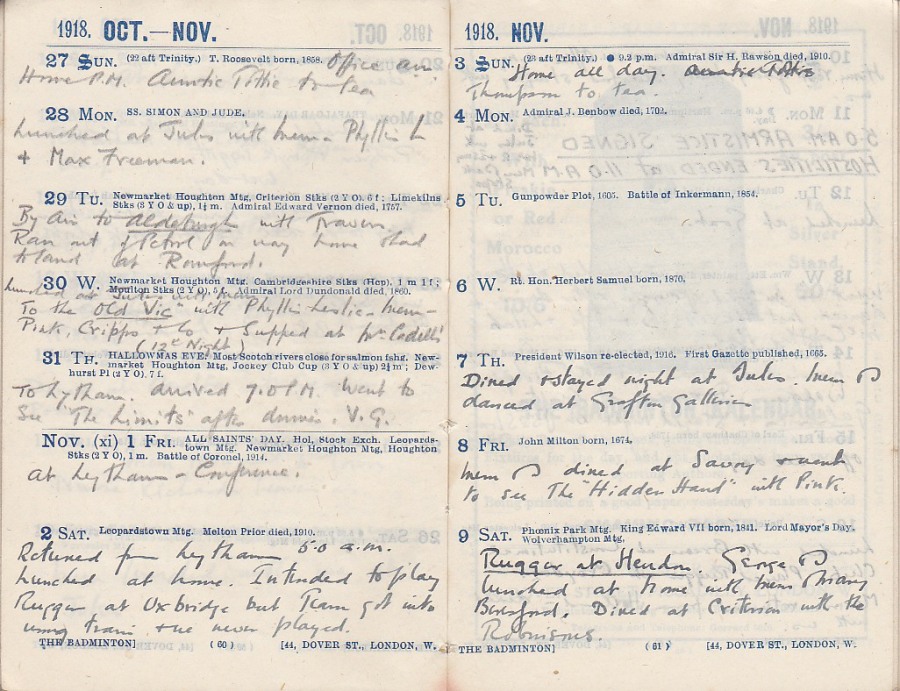 1918. OCT.—NOV.
27 SUN. (22 aft Trinity.) T. Roosevelt born, 1858. Office am
Home P.M. Auntie Tottie to tea
28 MON. SS. SIMON AND JUDE.
Lunched at Jules with Mem - Phyllis L
+ Max Freeman.
29 TU. Newmarket Houghton Mtg, Criterion Stks (2 Y O). 6 f; Limekilns
Stks (3 Y O & up), 1½ m. Admiral Edward Vernon died, 1757.
By Air to Aldeburgh with Travers.
Ran out of Petrol on way home + had
to land at Romford.
30 W. Newmarket Houghton Mtg. Cambridgeshire Stks (Hcp). 1 m 1 f;
Moulton Stks (2 Y O), 5 f. Admiral Lord Dundonald died, 1860.
Lunched at Jules with Mem
To the "Old Vic" with Phyllis Leslie - Mem -
Pink, Cripps + Co + Supped at Mrs Cadells
(12th Night)
31 TH. HALLOWMAS EVE. Most Scotch rivers close for salmon fshg. New-
market Houghton Mtg, Jockey Club Cup (3 Y O & up) 2¼ m; Dew-
hurst Pl (2 Y O). 7 f.
To Lytham. arrived 7.0 P.M. Went to
See "The Limits" after dinner. V.G.
NOV. (xi) 1 FRI. ALL SAINTS' DAY. Hol, Stock Exch. Leopards-
town Mtg. Newmarket Houghton Mtg, Houghton
Stks (2 Y O), 1 m. Battle of Coronel, 1914.
At Lytham - Conference.
2 SAT. Leopardstown Mtg. Melton Prior died, 1910.
Returned from Lytham 5.0 a.m.
Lunched at home. Intended to play
Rugger at Uxbridge but Team got into
wrong train + we never played.
THE BADMINTON] (60) [44, DOVER ST., LONDON, W.
1918. NOV.
3 SUN. (23 aft Trinity.) ● 9.2 p.m. Admiral Sir H. Rawson died, 1910.
Home all day. Auntie Tottie
Thompson to tea.
4 MON. Admiral J. Benbow died, 1702.
5 TU. Gunpowder Plot, 1605. Battle of Inkermann, 1854.
6 W. Rt. Hon. Herbert Samuel born, 1870.
7 TH. President Wilson re-elected, 1916. First Gazette published, 1665.
Dined + stayed night at Jules. Mem
danced at Grafton Galleries
8 FRI. John Milton born, 1674.
Mem dined at Savoy + went
to see The "Hidden Hand" with Pink.
9 SAT. Phœnix Park Mtg. King Edward VII born, 1841. Lord Mayor's Day.
Wolverhampton Mtg.
Rugger at Hendon. George
lunched at Home with Mem
Beresford. Dined at Criterion with the
Robinsons.
THE BADMINTON] (61) [44, DOVER ST., LONDON, W.